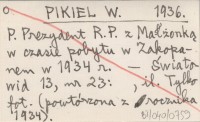 PIKIEL W. 1936.
P. Prezydent R.P. z Małżonką
w czasie pobytu w Zakopa-
nem w 1934 r. — Świato
wid 13, nr 23: , il. Tylko
fot. (powtórzona z rocznika
1934).